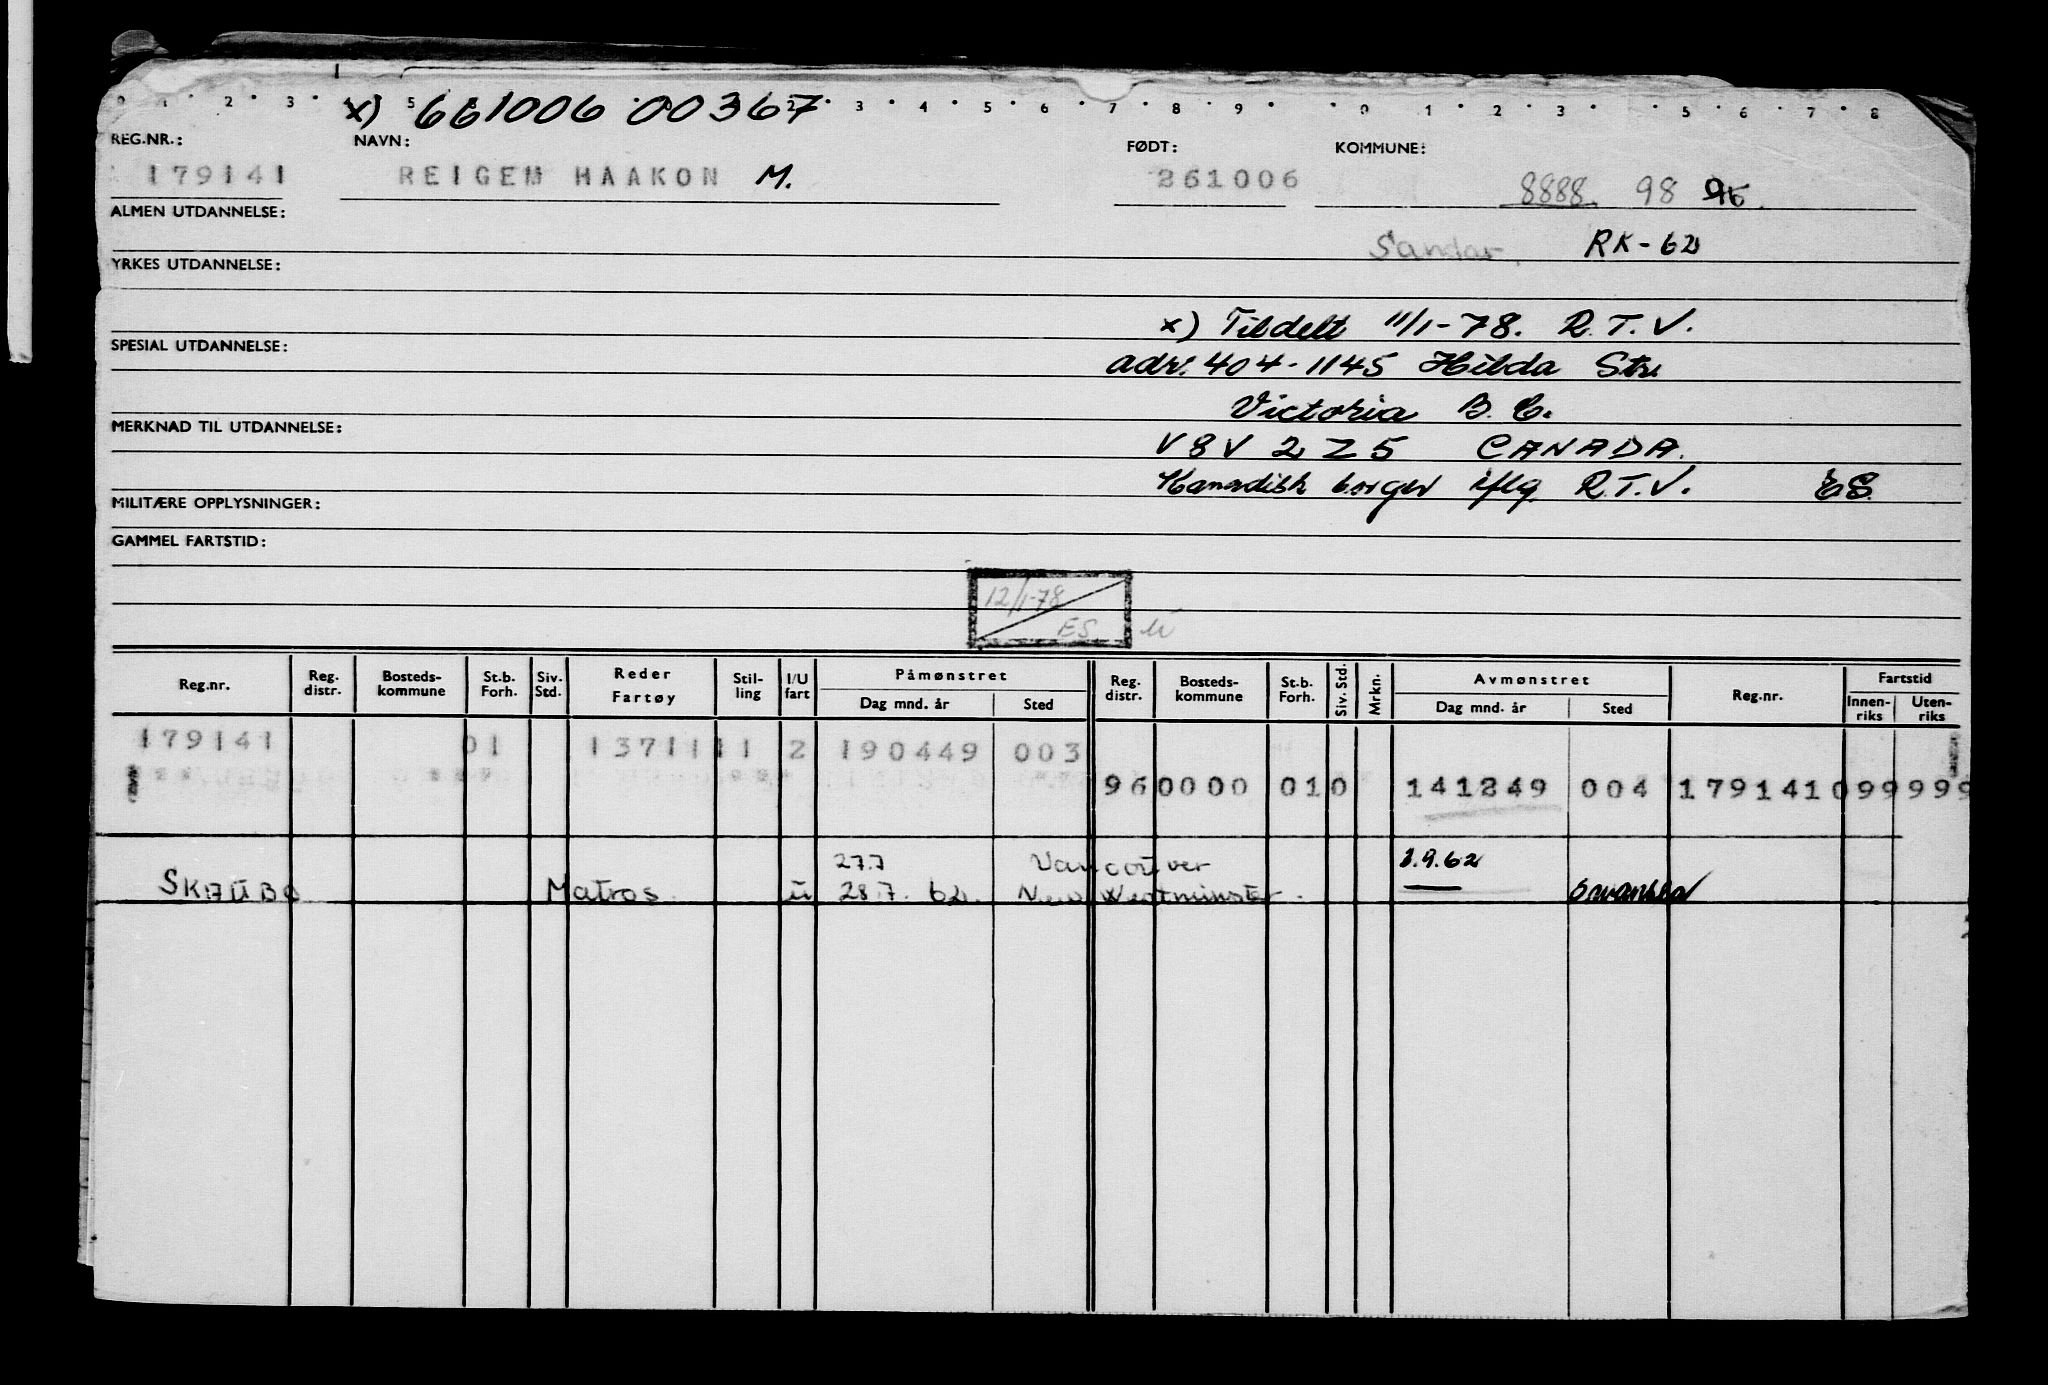 0 1 2 3 5 2 3 4 5 6 7 8 9 0 1 2 3 5 6 7 8
x) 661006 00367
REG.NR.: NAVN: FØDT: KOMMUNE:
179141 REIGEM HAAKON M. 261006 8888. 98
ALMEN UTDANNELSE:
Sandar. RK-62
YRKES UTDANNELSE:
x) Tildelt 11/1-78. R.T.V.
SPESIAL UTDANNELSE:
adr. 404-1145 Hilda Str.
Victoria B.C.
MERKNAD TIL UTDANNELSE:
V8V 2Z5 CANADA.
Kanadisk borger iflg. R.T.V. ES.
MILITÆRE OPPLYSNINGER:
GAMMEL FARTSTID:
12/1-78
ES
Reg.nr. Reg. distr. Bosteds- kommune St.b. Forh. Siv. Std. Reder Fartøy Stil- ling I/U fart Påmønstret Dag mnd. år Sted Reg. distr. Bosteds- kommune St.b. Forh. Siv. Std. Mrkn. Avmønstret Dag mnd. år Sted Reg.nr. Fartstid Innen- riks Uten- riks
179141 01 1371111 2 190449 003
960000 010 141249 004 179141099999
27.7 Vancouver 1.9.62
SKAUBO Matros u 28.7.62. New Westminster. Swansea